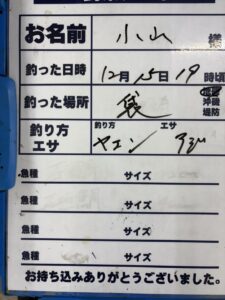 お名前 小山 様
釣った日時 12月15日19時頃
釣った場所 袋 沖磯 堤防
釣り方 エサ 釣り方 ヤエン エサ アジ
魚種 サイズ
魚種 サイズ
魚種 サイズ
魚種 サイズ
お持ち込みありがとうございました。